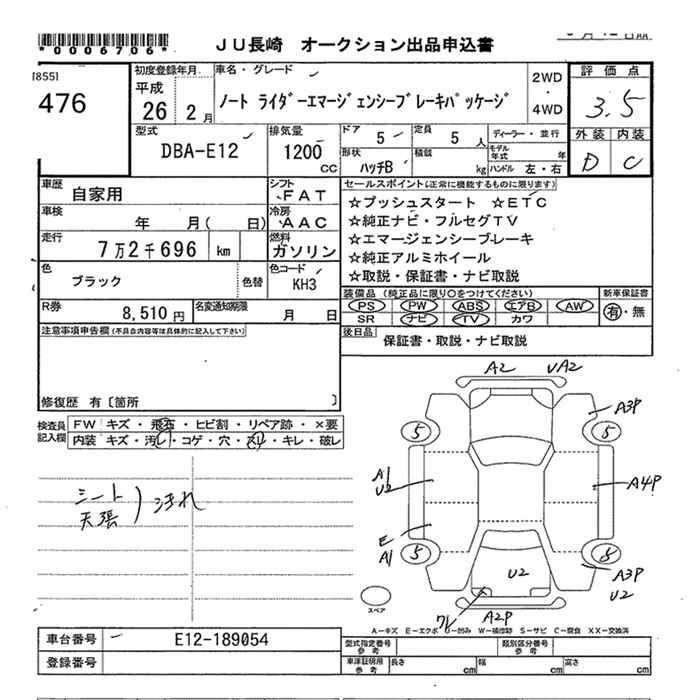 *0006706*
JU長崎 オークション出品申込書
[855]
476
初度登録年月
平成
26 2月
車名・グレード
ノート ライダーエマージェンシーブレーキパッケージ
2WD
・
4WD
評価点
3.5
外装 内装
D C
型式
DBA-E12
排気量
1200
cc
ドア 5
定員 5人
ディーラー・並行
形状
ハッチB
積載
kg
モデル年式 年
ハンドル 左・右
車歴
自家用
シフト
FAT
車検
年 月( 日)
冷房
AAC
走行
7万2千696 km
燃料
ガソリン
色
ブラック
色替
色コード
KH3
R券
8,510円
名変通知期限
月 日
セールスポイント(正常に機能するものに限ります)
☆プッシュスタート ☆ETC
☆純正ナビ・フルセグTV
☆エマージェンシーブレーキ
☆純正アルミホイール
☆取説・保証書・ナビ取説
装備品(純正品に限り○をつけてください) 新車保証書
PS PW ABS エアB AW 有・無
SR ナビ TV カワ
後日品
保証書・取説・ナビ取説
注意事項申告欄(不具合内容等は具体的に記入して下さい)
修復歴 有〔箇所 〕
検査員記入欄
FW キズ・飛石・ヒビ割・リペア跡・×要
内装 キズ・汚レ・コゲ・穴・スレ・キレ・破レ
シート
天張
A2 A2
A3P
5 5
A1
U2
A4P
E
A1
5 5
A3P
U2
U2
A2P
スペア
A-キズ E-エクボ U-凹み W-補修跡 S-サビ C-腐食 XX-交換済
車台番号 E12-189054
登録番号
型式指定番号参考
類別区分番号参考
車庫証明用参考
長さ cm 幅 cm 高さ cm